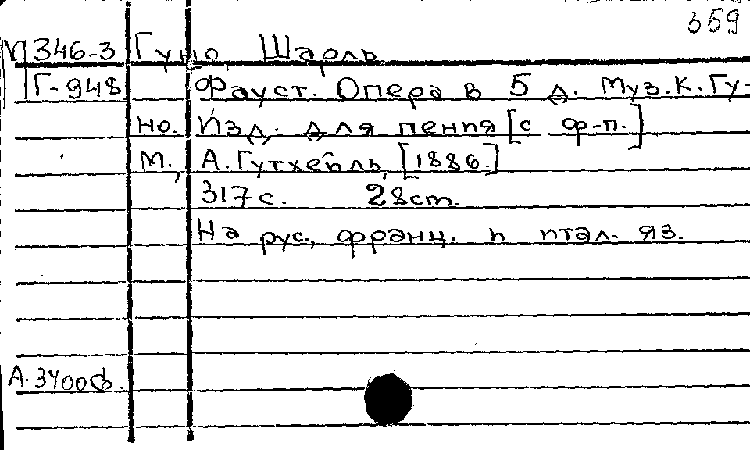 359
М346-3 Гуно, Шарль
Г-948 Фауст. Опера в 5 д. Муз. К. Гу-
но. Изд. для пения [с ф-п.]
М., А. Гутхейль, [1886.]
317 с. 28 cm.
На рус., франц. и итал. яз.
А.3400ф.